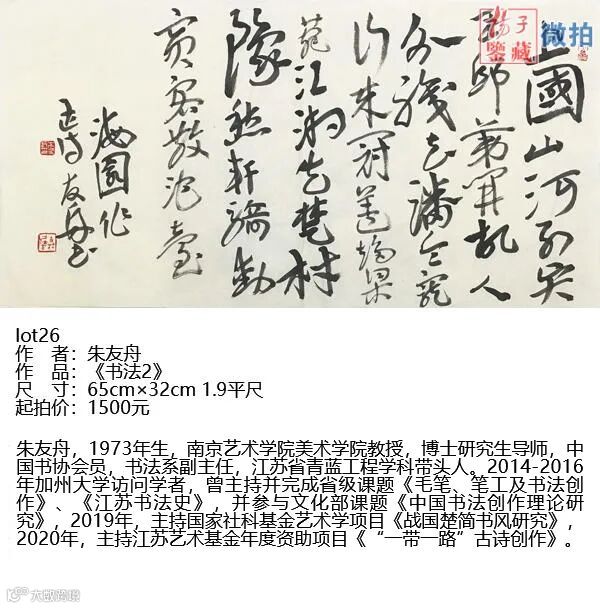 上國山河列
邸第開故人
冠蓋梁
苑江湘楚材
豫愁軒騎動
賓客散池臺
園作
友舟書
揚子
鑒藏
微拍
lot26
作　者：朱友舟
作　品：《书法2》
尺　寸：65cm×32cm 1.9平尺
起拍价：1500元
朱友舟，1973年生，南京艺术学院美术学院教授，博士研究生导师，中
国书协会员，书法系副主任，江苏省青蓝工程学科带头人。2014-2016
年加州大学访问学者，曾主持并完成省级课题《毛笔、笔工及书法创
作》、《江苏书法史》，并参与文化部课题《中国书法创作理论研
究》，2019年，主持国家社科基金艺术学项目《战国楚简书风研究》，
2020年，主持江苏艺术基金年度资助项目《“一带一路”古诗创作》。
大数跨境